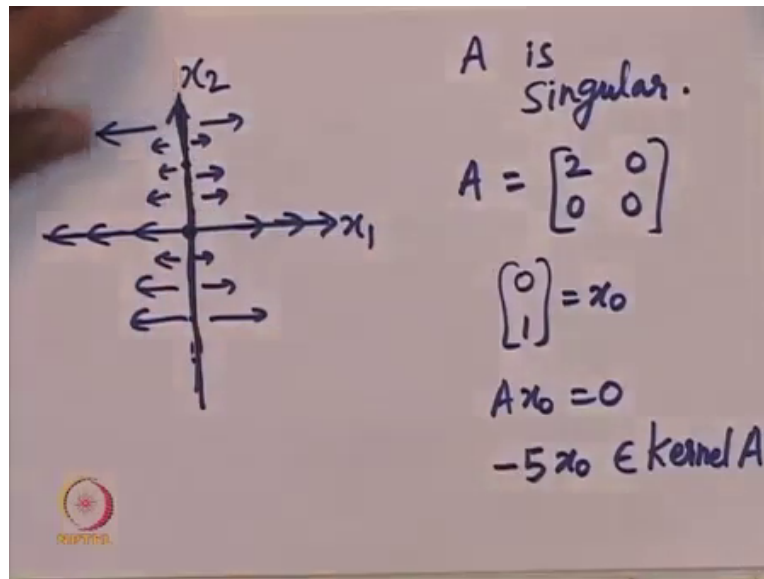 x₂
x₁
A is
Singular.
A = [2 0
0 0]
[0
1] = x₀
Ax₀ = 0
-5x₀ ∈ Kernel A
NPTEL